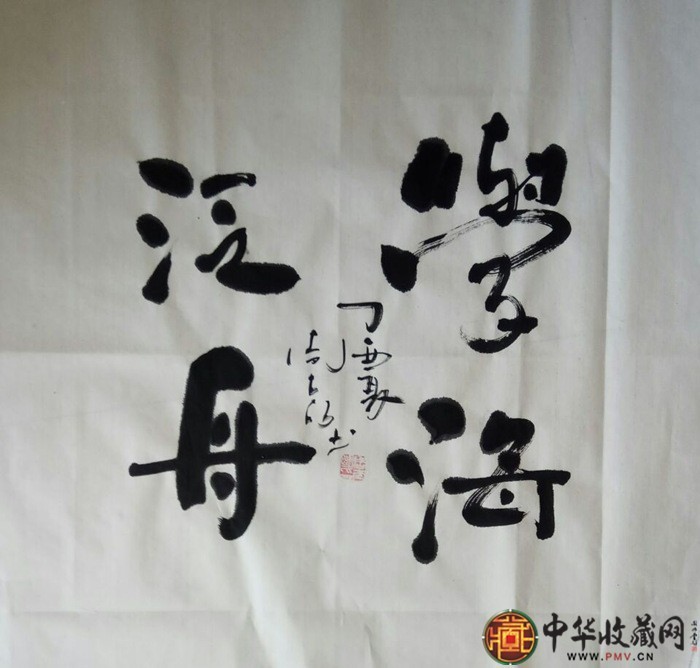 學海
泛舟
丁酉夏
中华收藏网
WWW.PMV.CN